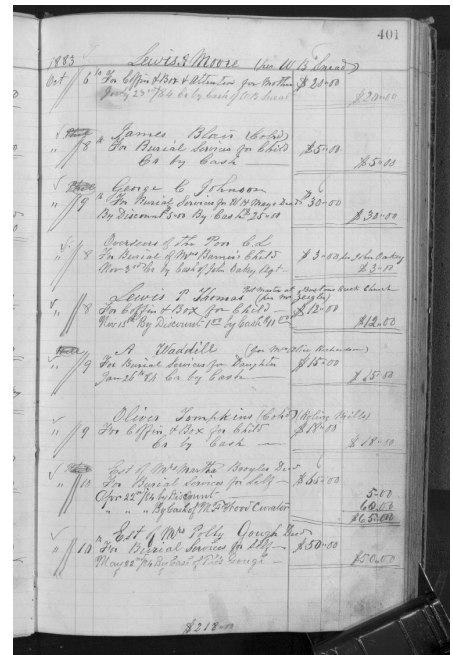 401
1883 Lewis I Moore (per W. B. Snead)
Oct 6th For Coffin & Box & Attention for Mother $20-00
Jany 23rd /84 Cr by Cash of W B Snead $20-00
" 8 " James Blair (Cold)
For Burial Services for Child $5-00
Cr by Cash $5-00
" 9 " George C Johnson
For Burial Services for W. H. Mays Decd $30-00
By Discount 5-00 By Cash 25-00 $30-00
" 8 Overseers of the Poor C. L
For Burial of Mrs Barnes's Child $3-00 per John Oakey
Nov 3rd Cr by Cash of John Oakey Agt $3-00
" 8 Lewis P Thomas (per Mr Zeigler)
For Coffin & Box for Child $12-00
Nov 15th By Discount 1.00 by Cash 11.00 $12.00
" 9 A Waddill (for Mrs Alice Richardson)
For Burial Services for Daughter $15-00
Jan 26th 84 Cr by Cash $15-00
" 9 Oliver Tompkins (Cold) (Roling Mills)
For Coffin & Box for Child $18-00
Cr by Cash $18-00
" 10 Est of Mrs Martha Broyles Decd
For Burial Services for Self $65-00
Apr 22nd /84 by Discount 5-00
" " " By Cash of Curator 60.00
$65.00
" 10 Est of Mrs Polly Gough Decd
For Burial Services for Self $50-00
May 22nd /84 By Cash of Gough $50.00
$218-00